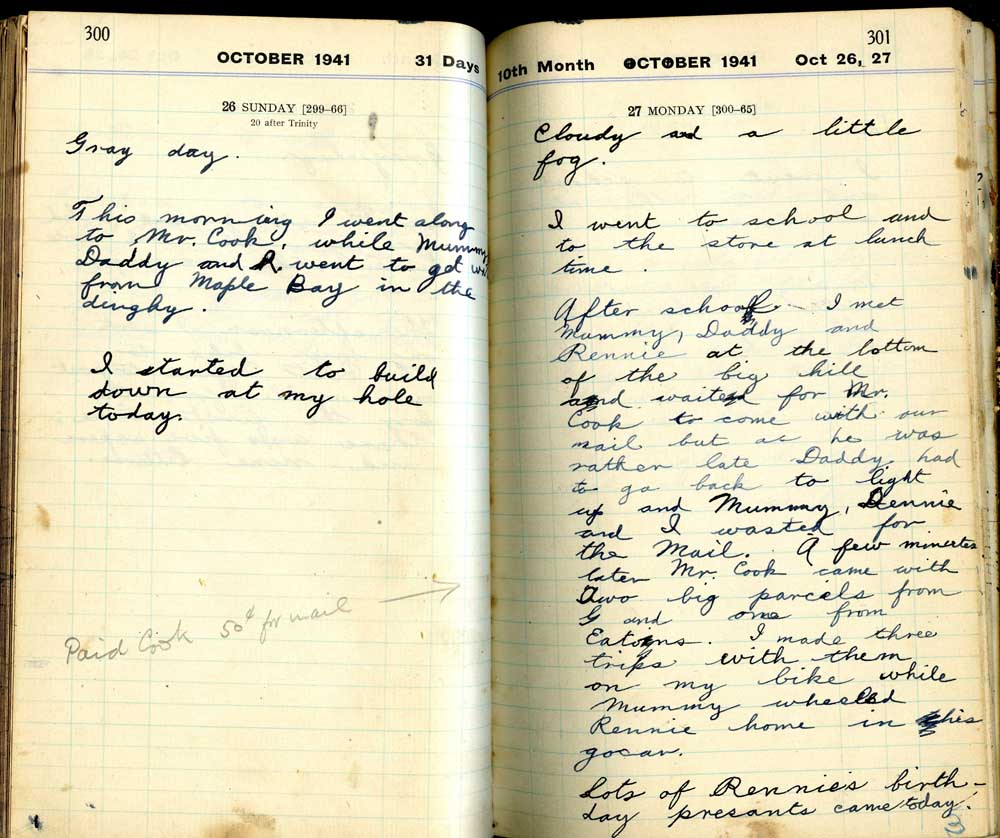 300
OCTOBER 1941 31 Days
26 SUNDAY [299–66]
20 after Trinity
Gray day.
This morning I went along
to Mr. Cook, while Mummy,
Daddy and R. went to get
from Maple Bay in the
dinghy.
I started to build
down at my hole
today.
Paid Cook 50¢ for mail →
301
10th Month OCTOBER 1941 Oct 26, 27
27 MONDAY [300–65]
Cloudy and a little
fog.
I went to school and
to the store at lunch
time.
After school I met
Mummy, Daddy and
Rennie at the bottom
of the big hill
and waited for Mr.
Cook to come with our
mail but as he was
rather late Daddy had
to go back to light
up and Mummy, Rennie
and I wasted for
the Mail. A few minutes
later Mr. Cook came with
Two big parcels from
G and one from
Eatons. I made three
trips with them
on my bike while
Mummy wheeled
Rennie home in his
gocar.
Lots of Rennie's birth-
day presants came today.